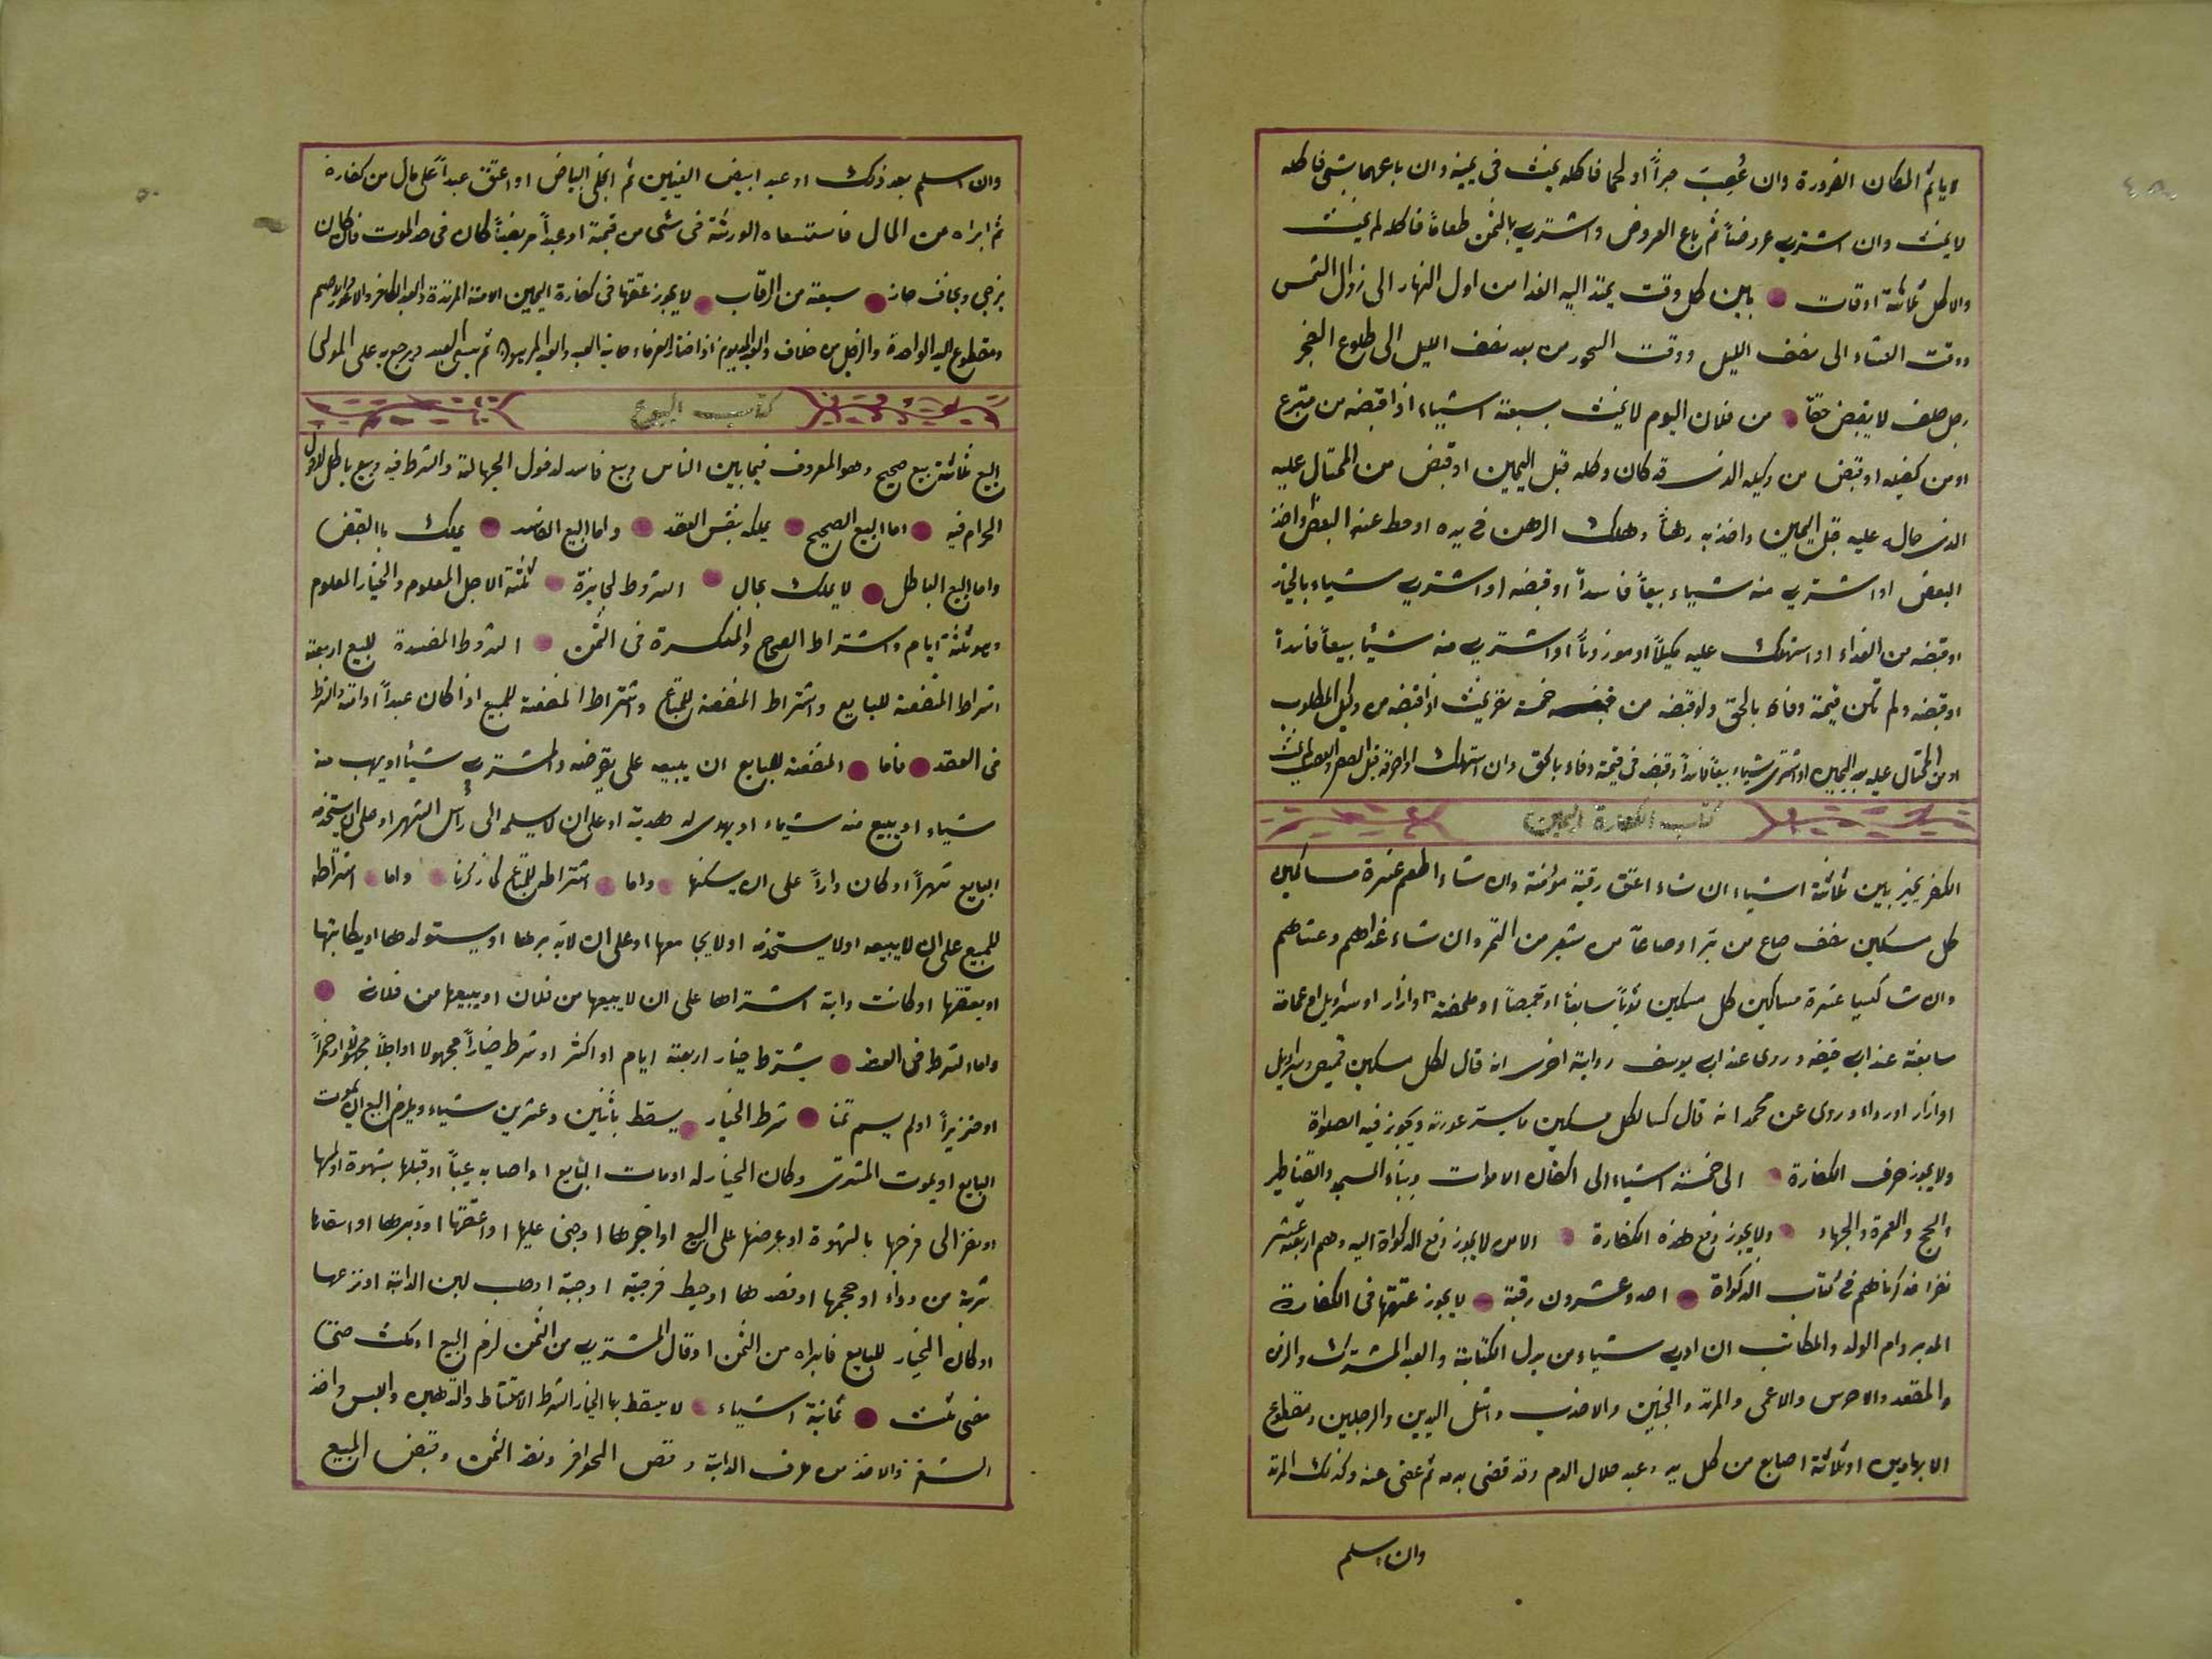 لا يأثم المكان الضرورة وان غصب خبزاً او لحما فاكله يحنث فى يمينه وان باعهما بشئ فاكله
لا يحنث وان اشترى عروضاً ثم باع العروض واشترى بالثمن طعاماً فاكله لم يحنث
والاكل ثلاثة اوقات يابين كل وقت يمتد اليه الغدا من اول النهار الى زوال الشمس
ووقت العشاء الى نصف الليل ووقت السحور من بعد نصف الليل الى طلوع الفجر
رجل حلف لا يقبض حقاً من فلان اليوم لا يحنث بسبعة اشياء اذا قبضه من متبرع
او من كفيله او قبض من وكيله الذى قد كان وكله قبل اليمين او قبض من المحتال عليه
الذى حال عليه قبل اليمين واخذ به رهناً وهلك الرهن فى يده او حط عنه البعض واخذ
البعض او اشترى منه شياء بيعاً فاسداً او قبضه او اشترى شياء بالخيار
او قبضه من الغداء او استهلك عليه مكيلاً او موزوناً او اشترى منه شيئا بيعاً فاسداً
او قبضه ولم تكن قيمة وفاء بالحق ولو قبضه من خمسة نفر يحنث اذا قبضه من وكيل المطلوب
او من المحتال عليه بعد اليمين او اشترى شياء بيعاً فاسداً وقبضه فى قيمة وفاء بالحق وان استهلك
كتاب الكفارة اليمين
الكفر يخير بين ثلاثة اشياء ان شاء اعتق رقبة مؤمنة وان شاء اطعم عشرة مساكين
كل مسكين نصف صاع من بر او صاعاً من شعير من التمر وان شاء غداهم وعشاهم
وان شا كسيا عشرة مساكين كل مسكين ثوباً سابغاً او قميصاً او ملحفة او ازار او سراويل او عمامة
سابغة عند ابى حنيفه وروى عند ابى يوسف رواية اخرى انه قال لكل مسكين قميص وسراويل
او ازار او رداء وروى عن محمد انه قال كسا لكل مسكين ما يستر عورته ويجوز فيه الصلواة
ولا يجوز صرف الكفارة الى خمسة اشياء الى اكفان الاموات وبناء المسجد والقناطير
والحج والعمرة والجهاد ولا يجوز دفع هذه الكفارة الا من لا يجوز دفع الذكواة اليه وهم اربعة عشر
نفرا قد ذكرناهم فى كتاب الذكواة احد وعشرون رقبة لا يجوز عتقها فى الكفارة
المدبر وام الولد والمكاتب ان ادى شياء من بدل الكتابة والعبد المشترك والزمن
والمقعد والاخرس والاعمى والمرتد والجنين واشل اليدين والرجلين ومقطوع
الابهامين او ثلاثة اصابع من كل يد وعبد حلال الدم وقد قضى بدمه ثم عفى عنه وكذلك المرتد
وان اسلم
وان اسلم بعد ذلك او عبد ابيض العينين ثم انجلى البياض او اعتق عبداً على مال من كفارة
ثم ابراه من المال فاستسعاه الورثة فى شئ من قيمة او عبداً مريضاً كان فى حد الموت فان كان
يرجى ويخاف جاز سبعة من الرقاب لا يجوز عتقها فى كفارة اليمين الامة المرتدة والعبد الكافر والاعور والاصم
ومقطوع اليد الواحدة والرجل من خلاف والعبد المديون اذا اختار الغرماء ثم يسعى العبد ويرجع به على المولى
كتاب البيوع
البيع ثلاثة بيع صحيح وهو المعروف فيما بين الناس وبيع فاسد لدخول الجهالة والشرط فيه وبيع باطل لدخول
الحرام فيه اما البيع الصحيح يملك بنفس العقد واما البيع الفاسد يملك باالقبض
واما البيع الباطل لا يملك بحال الشروط الجايزة ثلثة الاجل المعلوم والخيار المعلوم
وهو ثلثة ايام واشتراط الصحاح والمكسرة فى الثمن الشروط المفسدة للبيع اربعة
اشراط المنفعة للبايع واشتراط المنفعة للمبتاع واشتراط المنفعة للمبيع اذا كان عبداً او امة والشرط
فى العقد فاما المنفعة للبايع ان يبيعه على يقرضه والمشترى شيئا او يهب منه
شياء او يبيع منه شياء او يهدى له هدية او على ان لا يسلمه الى رأس الشهر او على ان يستخدمه
البايع شهراً او كان داراً على ان يسكنها واما اشتراطه للمبتاع كما ذكرنا واما اشتراطه
للمبيع على ان لا يبيعه او لا يستخدمه او لا يجامعها او على ان لا يدبرها او يستولدها او يكاتبها
او يعتقها او كانت دابة اشتراها على ان لا يبيعها من فلان او يبيعها من فلان
واما الشرط فى العقد بشرط خيار اربعة ايام او اكثر او شرط خياراً مجهولا او اجلاً مجهولا او خمراً
او خنزيراً او لم يسم ثمنا شرط الخيار يسقط باثنين وعشرين شياء ويلزم البيع ان يموت
البايع او يموت المشترى وكان الخيار له او مات البايع او اصابه عيباً او قبلها بشهوة او لمسها
او نظر الى فرجها بالشهوة او عرضها على البيع او اجرها او جنى عليها او اعتقها او دبرها او اسقاها
شربة من دواء او حجمها او فصدها او حيط فرجيه او جبة او حلب لبن الدابة او نزعها
او كان الخيار للبايع فابراه من الثمن او قال المشترى من الثمن لزم البيع او مكث حتى
مضى ثلث ثمانية اشياء لا يسقط بها الخيار الشرط الامتشاط والتدهين واللبس واخذ
الشعر والاخذ من عرف الدابة وقص الحوافر ونقد الثمن وقبض المبيع